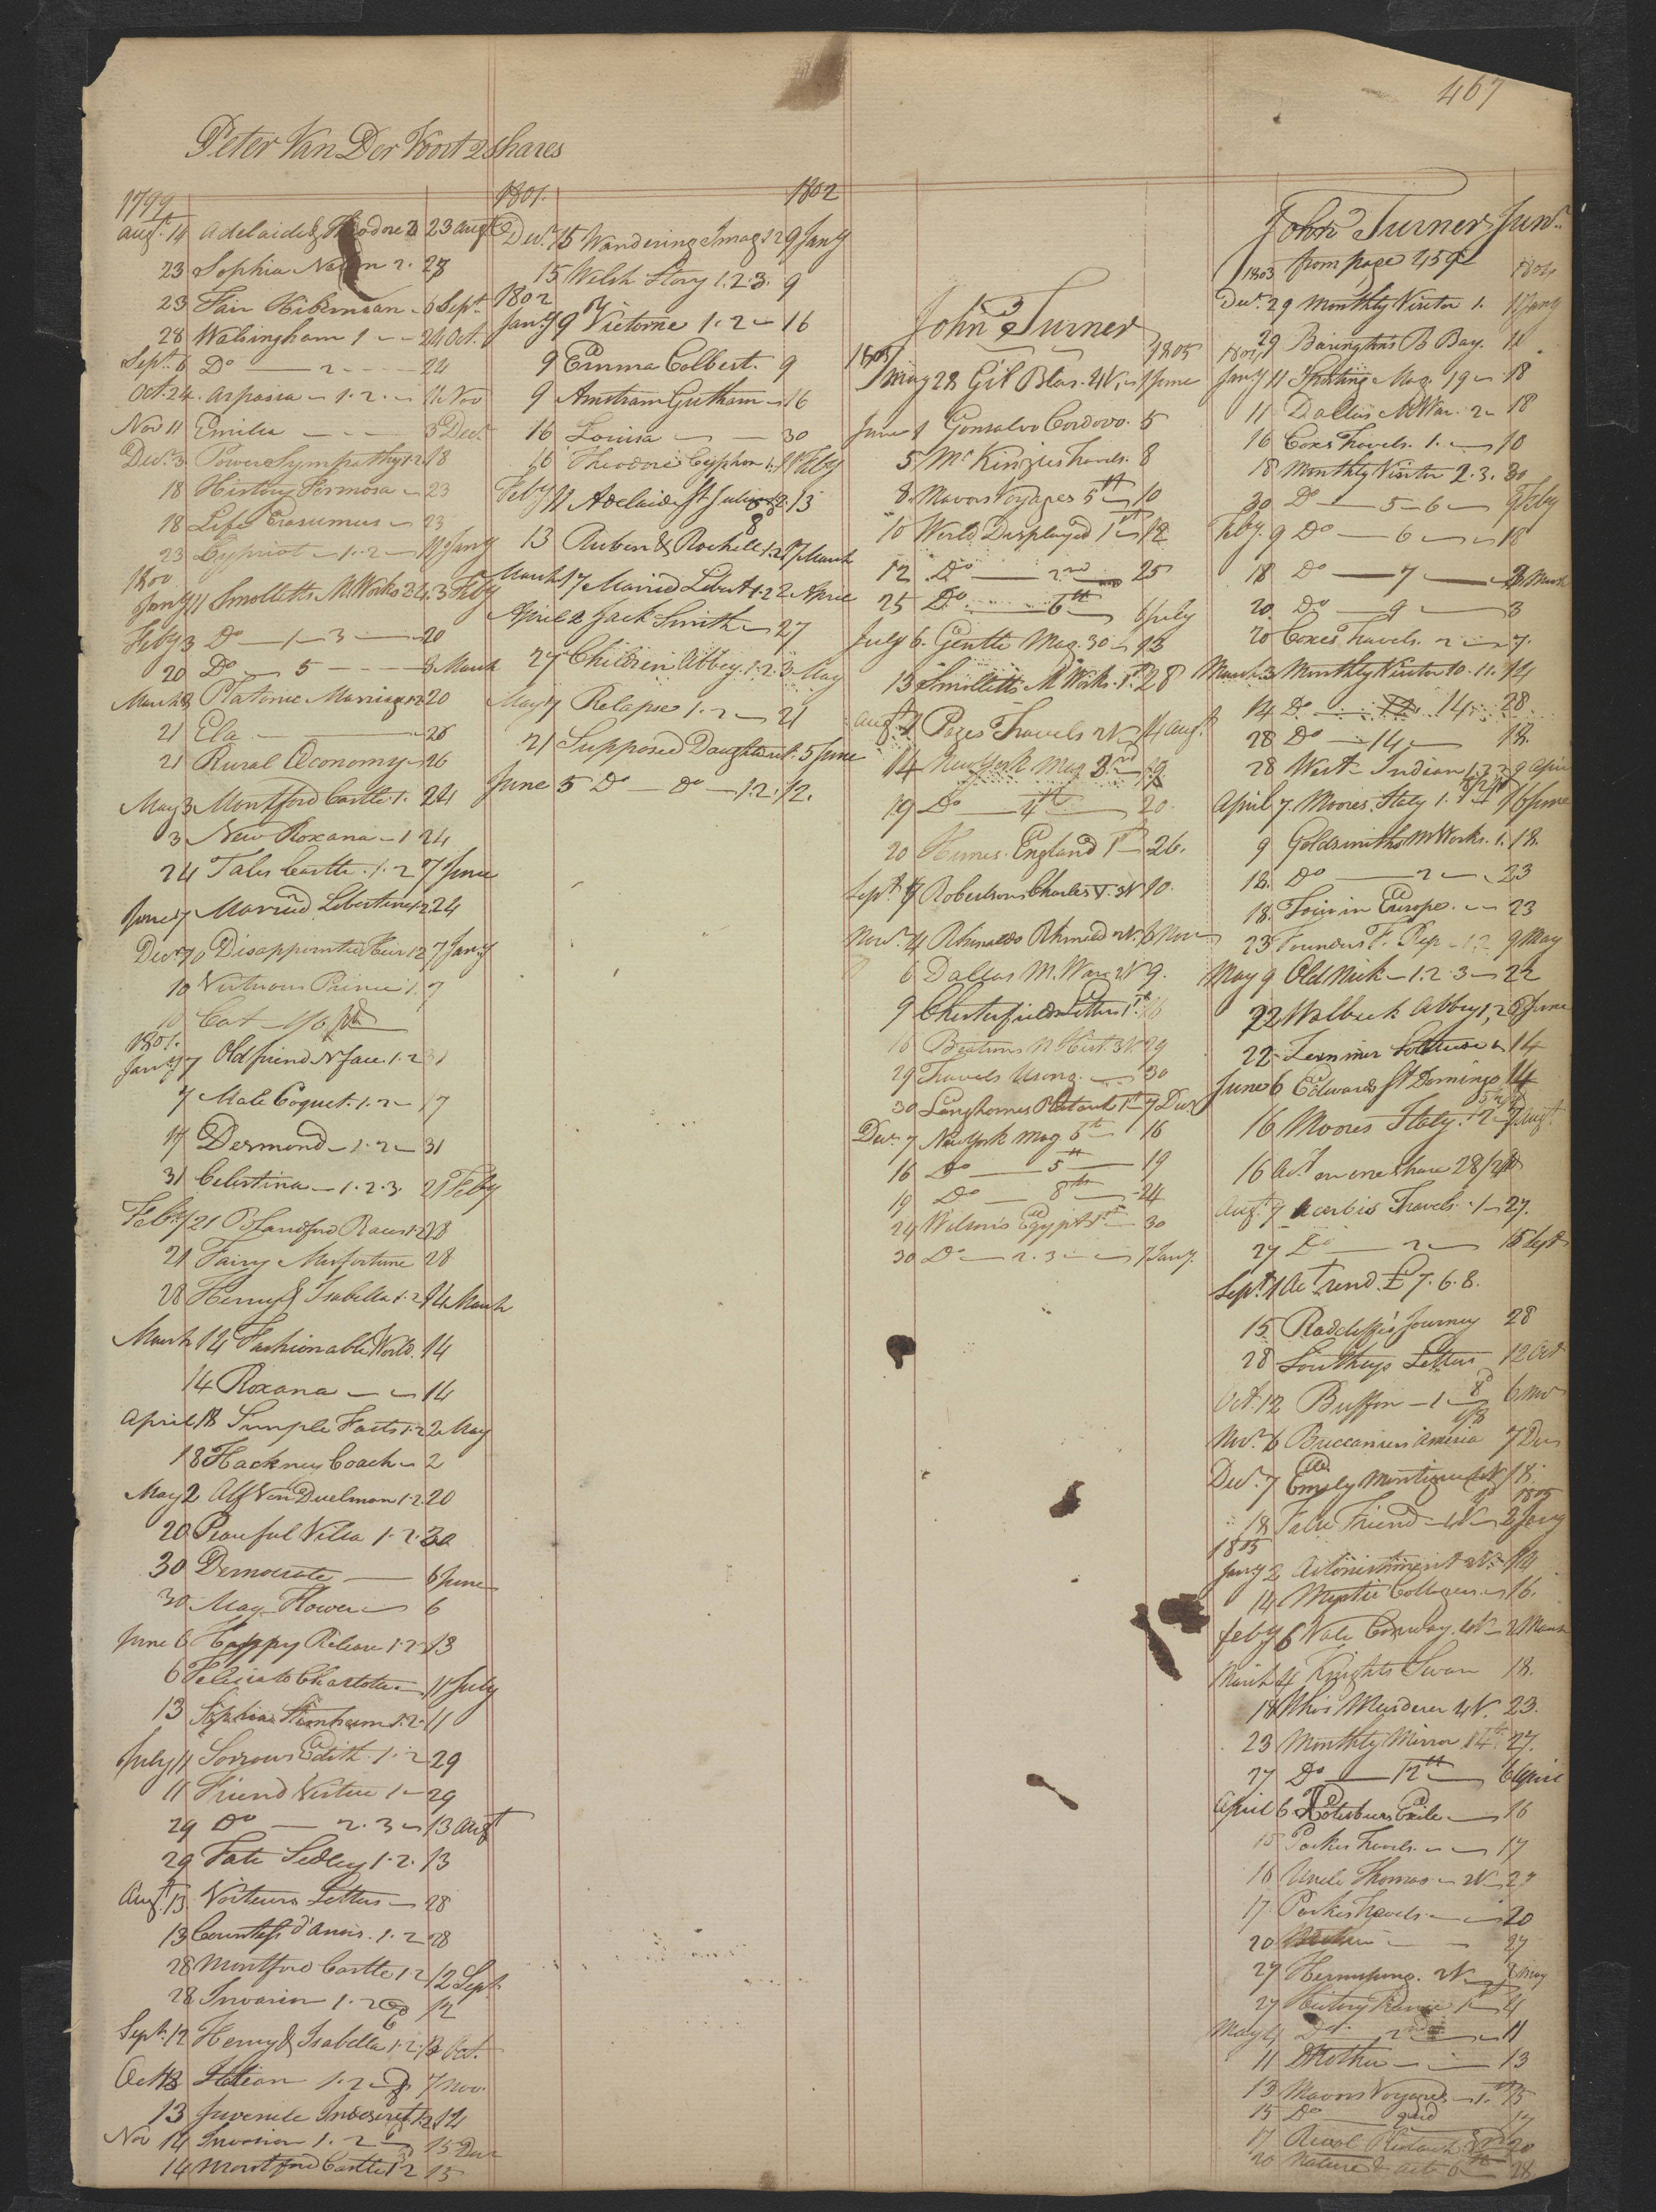 467
Peter Van Der Voort 2 Shares
1799
Augt. 14 Adelaide & Theodore 3 23 Augt
23 Sophia 2. 28
23 Fair Hibernian 3 Sept.
28 Walsingham 1 24 Oct.
Sept. 6 Do 2 24
Oct. 24 Aspasia 1.2. 11 Nov
Nov 11 Emilia 3 Decr.
Decr. 3 Power Sympathy 1.2. 18
18 History Formosa 23
18 Life Erasumus 23
23 Cypriot 1.2 11 Jany
1800
Jany 11 Smolletts M Works 2.4. 3 Feby
Feby 3 Do 1 3 20
20 Do 5 3 March
March 3 Platonic Marriage 1.2 20
21 Ela 26
21 Rural Œconomy 26
May 3 Montford Castle 1. 24
3 New Roxana 1 24
24 Tales Castle 1.2 7 June
June 7 Married Libertine 1.2 24
Decr. 10 Disappointed Heir 1.2 7 Jany
10 Virtuous Prince 1. 7
10 Cat 1/6 pd
1801.
Jany 7 Old friend N face 1.2 31
7 Male Coquet 1.2 17
17 Desmond 1.2 31
31 Celestina 1.2.3. 21 Feby
Feby 21 Blandford Races 1.2 28
21 Fairy Misfortune 28
28 Henry & Isabella 1.2 14 March
March 14 Fashionable World 14
14 Roxana 14
April 18 Simple Facts 1.2 2 May
18 Hackney Coach 2
May 2 Alf Von Duelman 1.2. 20
20 Peaceful Villa 1.2. 30
30 Democrate 6 June
30 May Flower 6
June 6 Happy Release 1.2 13
6 Felicia to Charlotte 11 July
13 Sophia Sternheim 1.2. 11
July 11 Sorrows Edith 1.2 29
11 Friend Virtue 1 29
29 Do 2.3 13 Augt
29 Fate Sedley 1.2. 13
Augt. 13 Voitures Letters 28
13 Countess d'Anois 1.2 28
28 Montford Castle 1.2 12 Sept
28 Invasion 1.2 12
Sept. 12 Henry & Isabella 1.2. 13 Oct.
Oct 13 Italian 1.2 7 Nov.
13 Juvenile Indiscret 1.2 14
Nov 14 Invasion 1.2 15 Decr
14 Montford Castle 1.2 15
1801. 1802
Decr. 15 Wandering Imag 1.2 9 Jany
15 Welsh Story 1.2.3. 9
1802
Jany 9 Victorne 1.2 16
9 Emma Colbert. 9
9 16
16 Louisa 30
16 Theodore Cyphon 1. 11 Feby
Feby 11 Adelaide St Julian 1.2. 13
13 Ruben & Rachell 1.2 17 March
March 17 Married Libert 1.2 2 April
April 2 Jack Smith 27
27 Children Abbey 1.2. 3 May
May 7 Relapse 1.2 21
21 Supposed Daughter 1. 5 June
June 5 Do Do 1.2. 12.
John Turner
1805 1805
May 28 Gil Blas. 4V. 1 June
June 1 Gonsalvo Cordovo. 5
5 McKinzies Travels. 8
8. Mavors Voyages 5th 10
10 World Displayed 1st 12
12 Do 2nd 25
25 Do 6th 6 July
July 6. Gentle Mag. 30 13
13 Smolletts M Works. 1st 28
Augt. 1 Pages Travels 2V 14 Augt.
14 New York Mag 3rd 19
19 Do 4th 20.
20 Humes. England 1st 26.
Sept. 7 Robertsons Charles V. 3V 10.
Novr. 4 Rhinaldo Rhinaldi 2V. 6 Nov
6 Dallas M. War 2V 9.
9 Chesterfields Letters 1st 16
16 Beatsons N Hist. 3V. 29
29 Travels Usong. 30
30 Langhornes Plutark 1st 7 Decr
Decr. 7 New York Mag 6th 16
16 Do 5th 19
19 Do 8th 24
24 Wilson's Egypt 1st 30
30 Do 2.3 1 Jany.
John Turner Junr.
from page 459
1803 1804
Decr. 29 Monthly Visitor 1. 11 Jany
29 Barringtons B Bay. 11
1804
Jany 11 Sporting Mag. 19 18
11 Dallas M War. 2 18
16 Coxs Travels. 1. 10
18 Monthly Visitor 2.3. 30
30 Do 5 6 9 Feby
Feby. 9 Do 6 18
18 Do 7 3 March
20. Do 9 3
20 Coxes Travels. 2 7.
March 3 Monthly Visitor 10.11. 14
14 Do 14. 28
28 Do 14 18.
28 West Indian 1.2 9 April
April 7. Moores Italy 1. 16 June
9 Goldsmiths M Works. 1. 18.
18. Do 2 23
18. Tour in Europe. 23
23 Founders F. Rep 1.2 9 May
May 9 Old Nick 1.2.3 22
22 Walbeck Abbey 1,2 6 June
22 Zimmer Solitude 14
June 6 Edwards St Domingo 14
16 Moores Italy 1.2 7 Augt.
16 Act. on one share 28/ pd
Augt. 7 Acerbis Travels 1 27.
27 Do 2 15 Sept
Sept. 1 Act rend. £7.6.8.
15 Radcliffes Journey 28
28 Southeys Letters 12 Oct
Oct. 12 Buffon 1 6 Nov
Novr. 6 Buccaniers America 7 Decr
Decr. 7 Emily Montigue 18.
1805
18 False Friend 4V 2 Jany
1805
Jany 2 Astonishment 2V. 14
14 Mystic Cottager 16.
Feby 6 Vale Conway. 4V 2 March
March 4 Knights Swan 18.
18 Whos Murderer 4V. 23.
23 Monthly Mirror 14th 27.
27 Do 12th 6 April
April 6 Petersburs Exile 16
15 Parkes Travels. 17
16 Uncle Thomas 2V. 27
17. Parkes Travels. 20
20 27
27 Hermsprong. 2V. 2 May
27 History France 1 4
May 4 Do. 2nd 11
11 DMother 13
13 Mavors Voyages 1. 15
15 Do 17
17 Plutark 20
20 Nature & Art 6 28